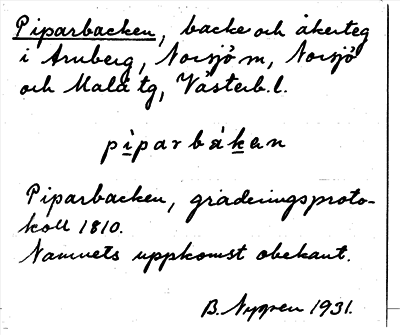 Piparbacken, backe och åkerteg
i Arnberg, Norsjö sn, Norsjö
och Malå tg, Västerb.l.
pìparbáken
Piparbacken, graderingsproto-
koll 1810.
Namnets uppkomst obekant.
B. Nygren 1931.